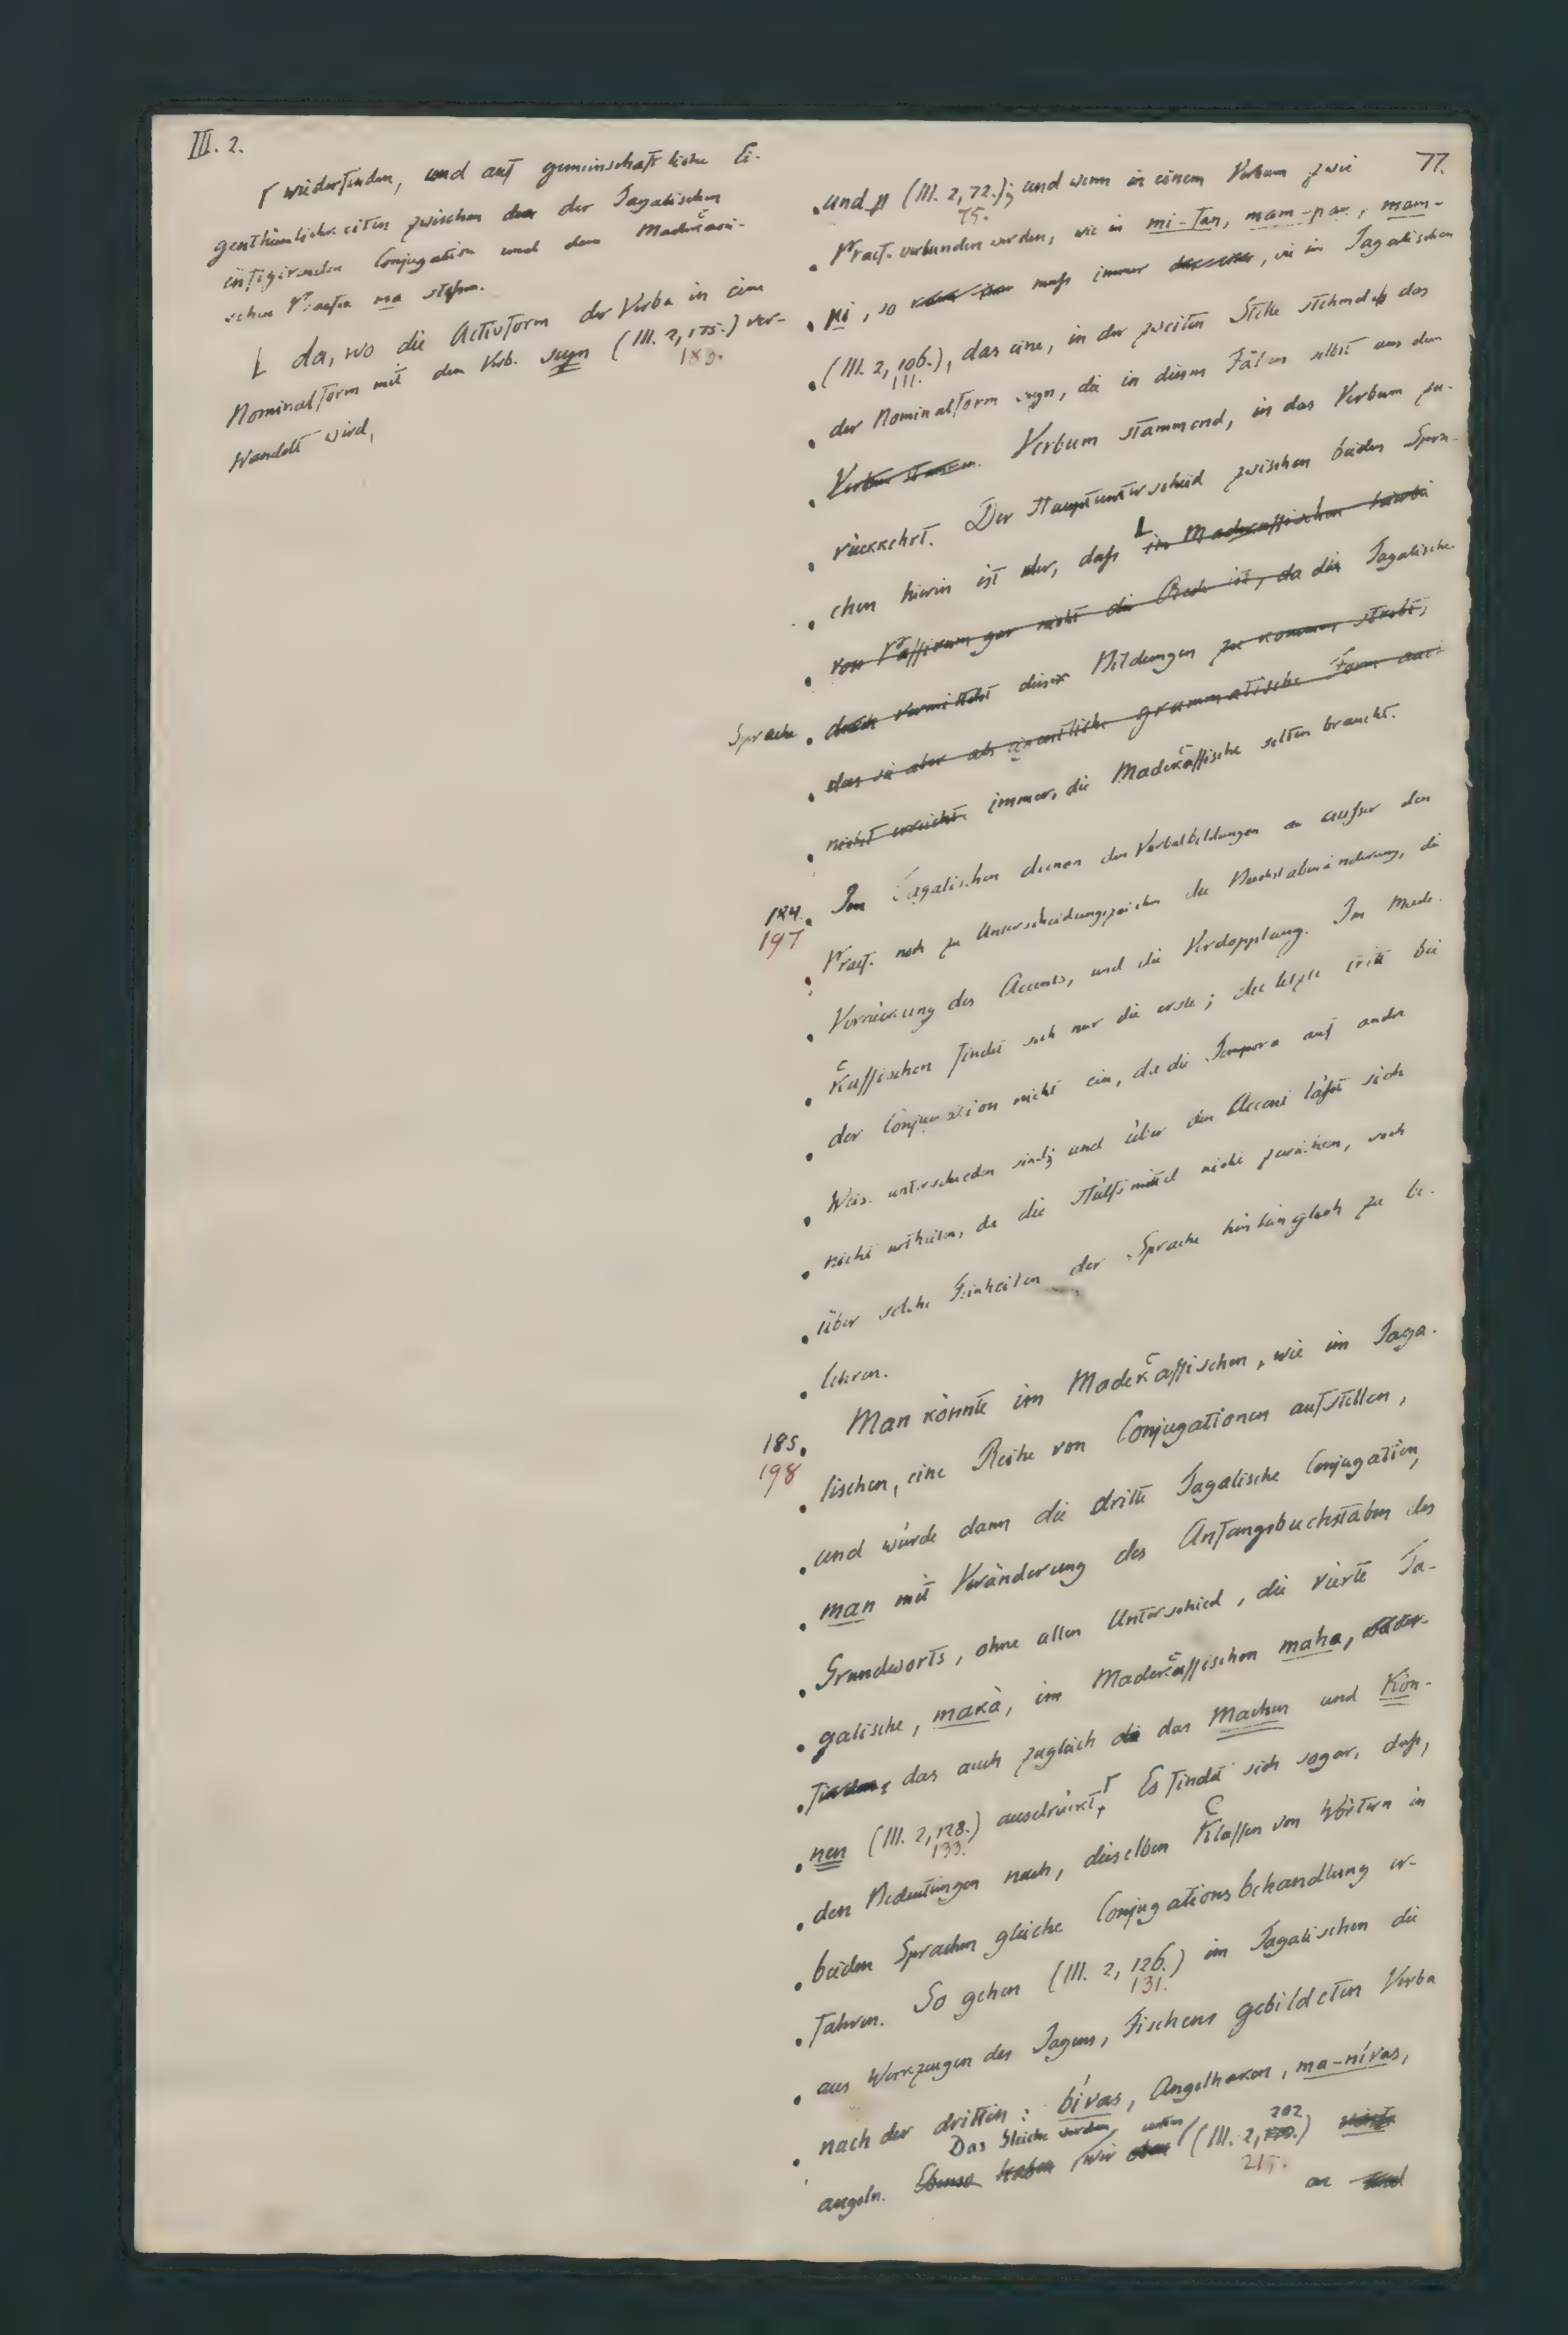 III. 2.
wiederfinden, und auf gemeinschaftliche Ei-
genthümlichkeiten zwischen der der Tagalischen
infigirenden Conjugation und dem Madecassi-
schen Praefix ma stossen.
da, wo die Activform der Verba in eine
Nominalform mit dem Verb. seyn (III. 2, 175.) ver-
183.
wandelt wird,
77.
und p (III. 2, 72.); und wenn in einem Verbum zwei
75.
Praef. verbunden werden, wie in mi-fan, mam-pan, mam-
pi, so muß immer, wie im Tagalischen
(III. 2, 106.), das eine, in der zweiten Stelle stehende das
111.
der Nominalform seyn, da in diesen Fällen selbst aus dem
Verbum stammen. Verbum stammend, in das Verbum zu-
rückkehrt. Der Hauptunterschied zwischen beiden Spra-
chen hierin ist der, daß im Madecassischen hierbei
vom Passivum gar nicht die Rede ist, da die Tagalische
Sprache
durch vermittelst dieser Bildungen zu kommen strebt,
das sie aber als eigentliche grammatische Form
nicht erreicht. immer, die Madecassische selten braucht.
184.
197
Im Tagalischen dienen den Verbalbildungen an außer den
Praef. noch zu Unterscheidungszeichen die Buchstabenänderung, die
Verrückung des Accents, und die Verdopplung. Im Made-
cassischen findet sich nur die erste; die letzte tritt bei
der Conjugation nicht ein, da die Tempora auf andre
Weise unterschieden sind; und über den Accent läßt sich
nicht urtheilen, da die Hülfsmittel nicht zureichen, uns
über solche Feinheiten der Sprache hinlänglich zu be-
lehren.
185.
198
Man könnte im Madecassischen, wie im Taga-
lischen, eine Reihe von Conjugationen aufstellen,
und würde dann die dritte Tagalische Conjugation,
man mit Veränderung des Anfangsbuchstaben des
Grundworts, ohne allen Unterschied, die vierte Ta-
galische, makà, im Madecassischen maha, wieder-
finden, das auch zugleich die das Machen und Kön-
nen (III. 2, 128.) ausdrückt, Es findet sich sogar, daß,
133.
den Bedeutungen nach, dieselben Classen von Wörtern in
beiden Sprachen gleiche Conjugationsbehandlung er-
fahren. So gehen (III. 2, 126.) im Tagalischen die
131.
aus Werkzeugen des Jagens, Fischens gebildeten Verba
nach der dritten: bívas, Angelhaken, ma-nívas,
Das Gleiche werden unten 202
angeln. Ebenso haben wir oben (III. 2,
215.
an